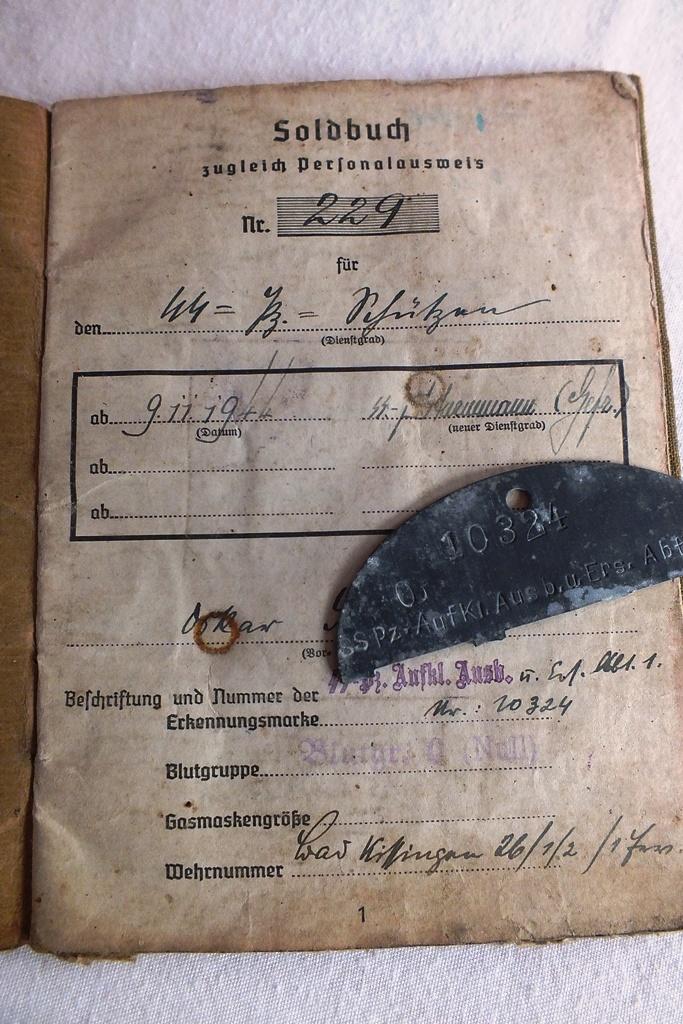 Soldbuch
zugleich Personalausweis
Nr. 229
für
den SS = Pz. = Schützen
(Dienstgrad)
ab 9.11.1944
(Datum) (neuer Dienstgrad)
(Gefr.)
ab
ab
10324
SS Pz. Aufkl. Ausb. u. Ers. Abt
Oskar
(Vor-
SS-Pz. Aufkl. Ausb. u. Ers. Abt. 1.
Beschriftung und Nummer der
Erkennungsmarke Nr.: 10324
Blutgruppe Blutgr. 0 (Null)
Gasmaskengröße
Wehrnummer Bad Kissingen 26/1/2/1
1